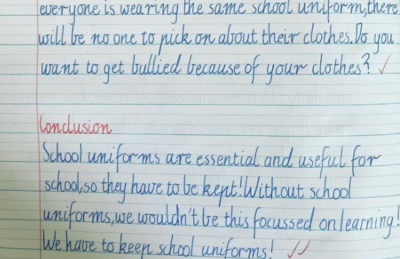 everyone is wearing the same school uniform, there
will be no one to pick on about their clothes. Do you
want to get bullied because of your clothes?
Conclusion
School uniforms are essential and useful for
school, so they have to be kept! Without school
uniforms, we wouldn't be this focussed on learning!
We have to keep school uniforms!